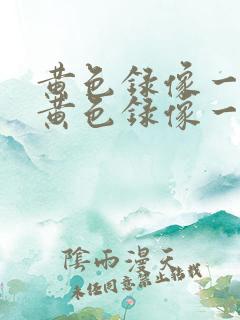 黄色録像一
黄色録像一
陰雨漫天
未任同意禁止転载